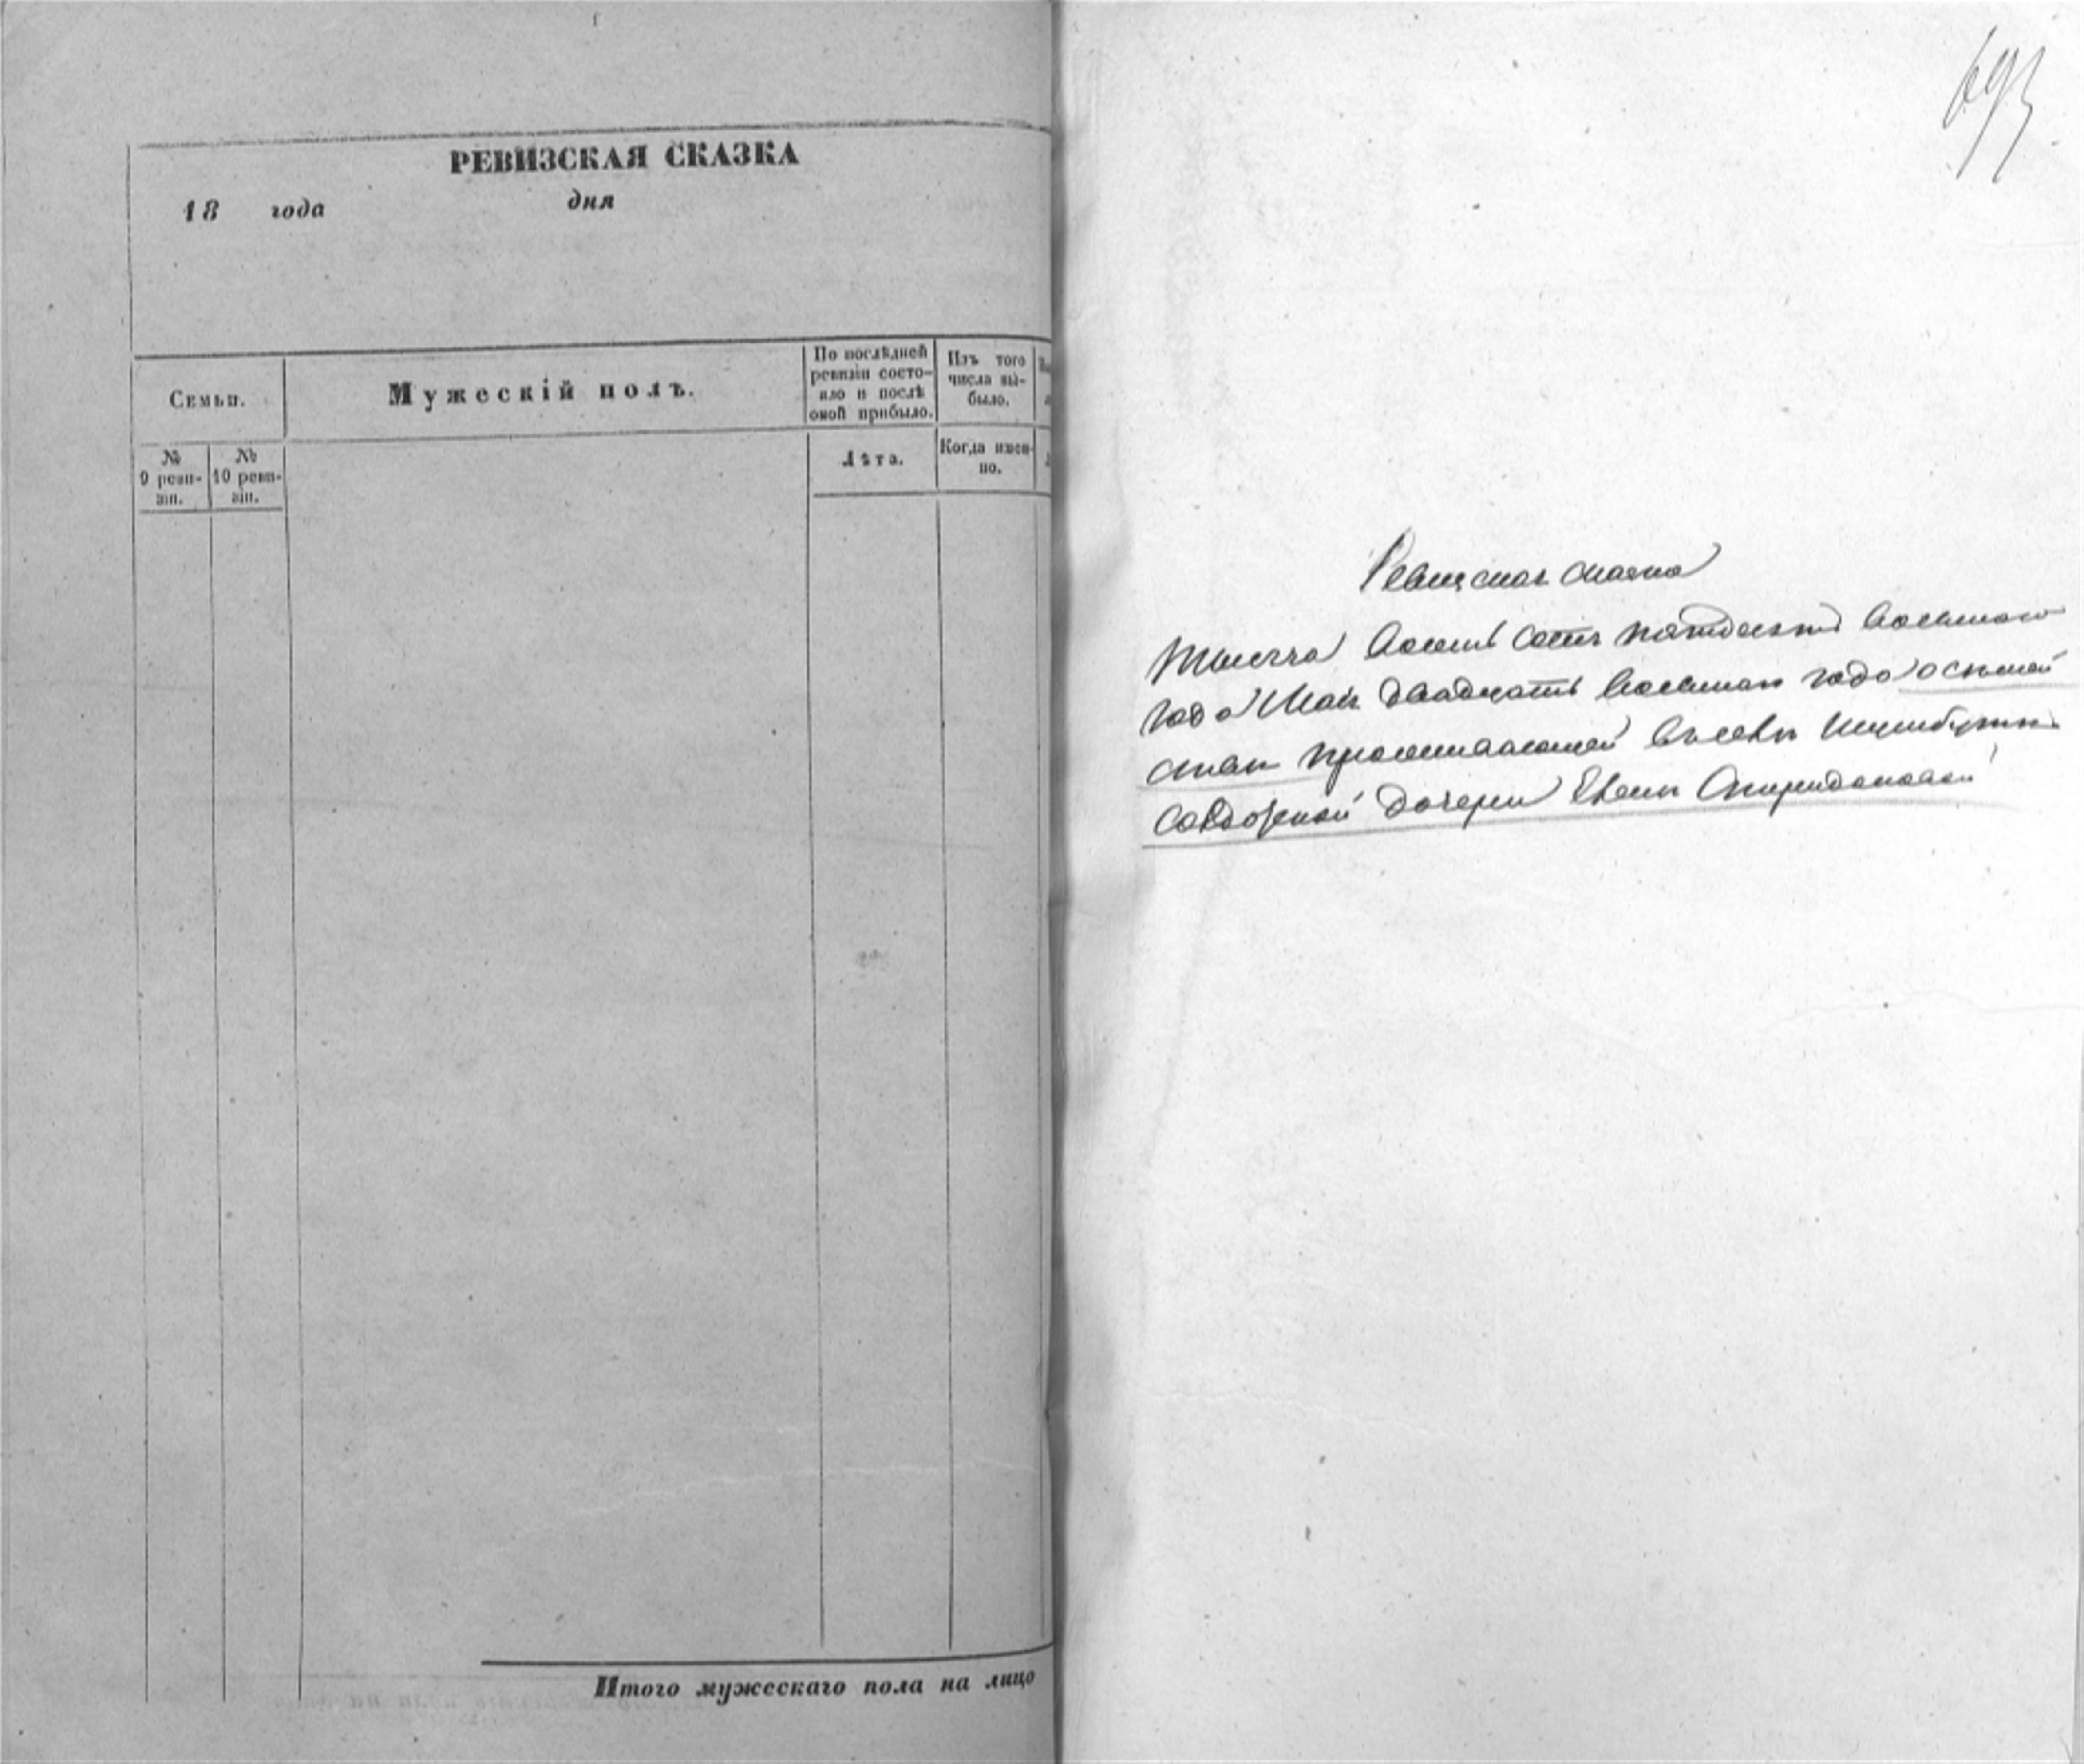 РЕВИЗСКАЯ СКАЗКА
18 года дня
Семьи.
Мужескій полъ.
По послѣдней
ревизіи состо-
яло и послѣ
оной прибыло.
Изъ того
числа вы-
было.
№
9 реви-
зіи.
№
10 реви-
зіи.
Лѣта.
Когда имен-
но.
Итого мужескаго пола на лицо
693
Ревизская сказка
Тысяча восемь сотъ пятдесятъ восьмого
года Мая двадцать восьмого года
проживающей въ селѣ
дочери Спиридоновой